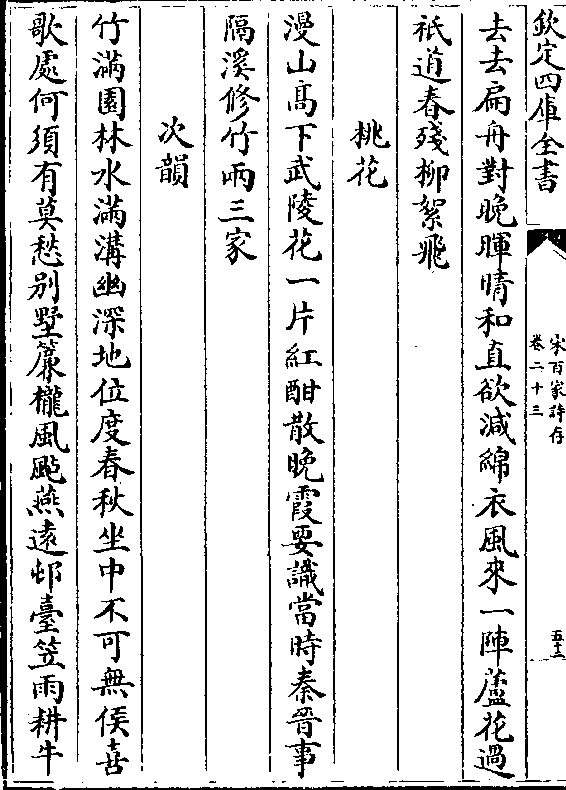 欽定四庫全書
宋百家詩存
卷二十三
五十三
去去扁舟對晚暉晴和直欲減綿衣風來一陣蘆花過
祇道春殘柳絮飛
桃花
漫山髙下武陵花一片紅酣散晚霞要識當時秦晉事
隔溪修竹兩三家
次韻
竹滿園林水滿溝幽深地位度春秋坐中不可無侯喜
歌處何須有莫愁别墅簾櫳風颭燕遠邨臺笠雨耕牛